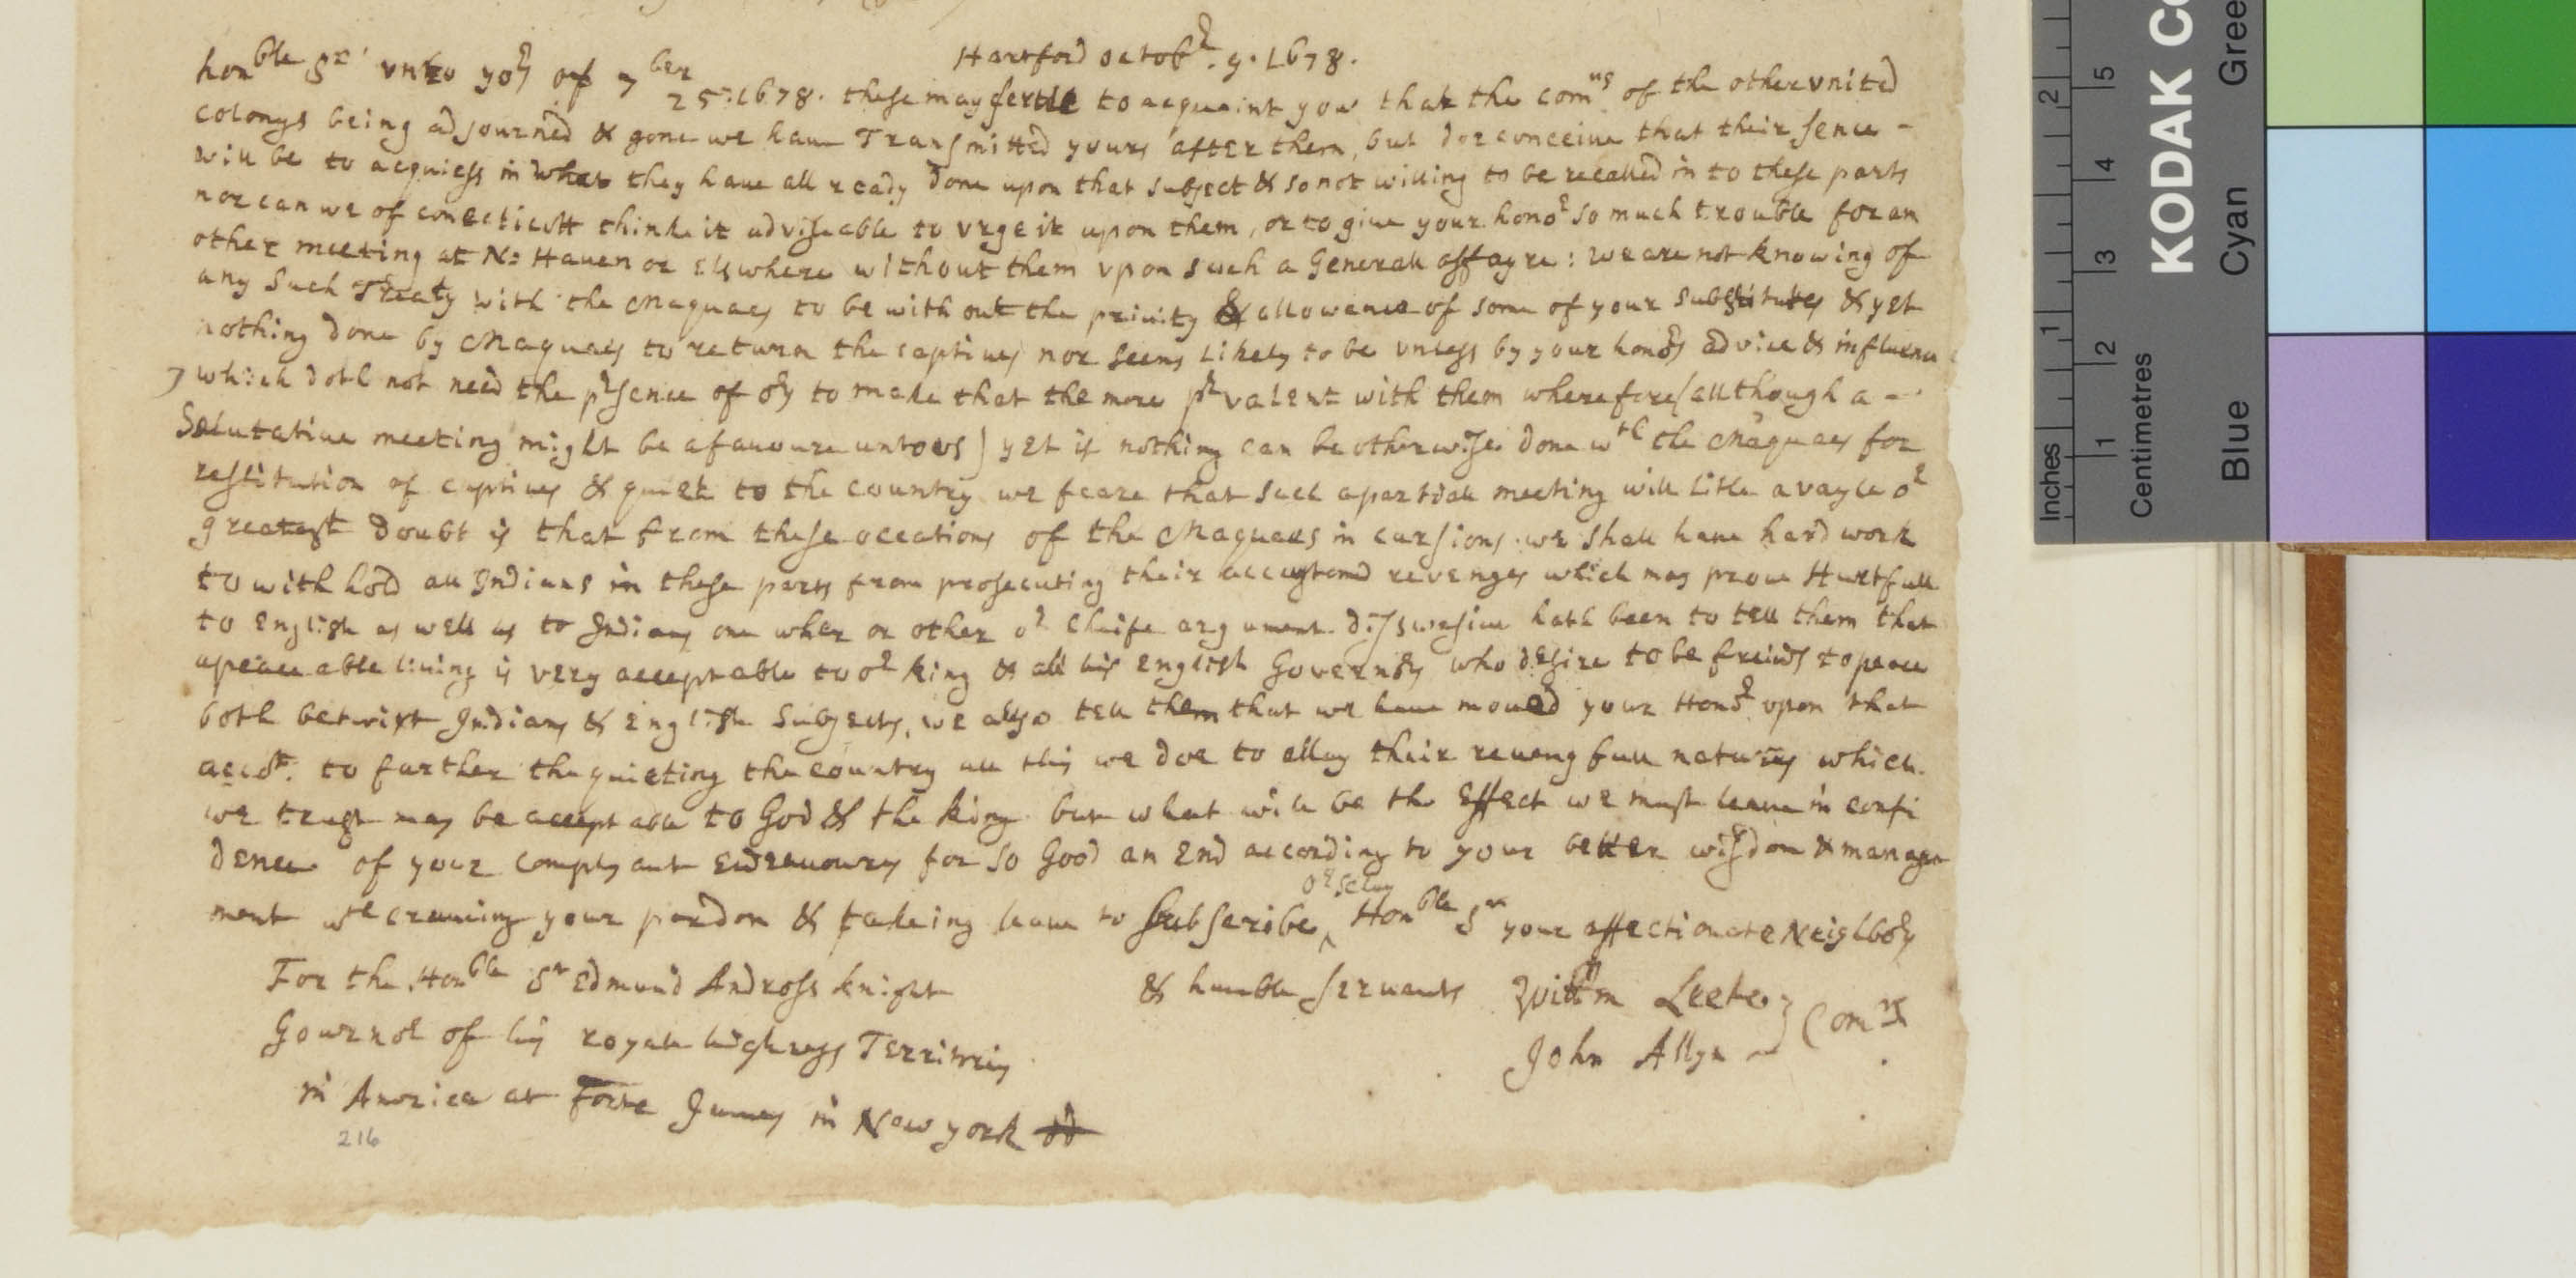 Hartford octobr. 9. 1678.
honble Sr unto yors of 7ber 25: 1678. these may serve to acquaint you that the comrs of the other united
colonys being adjourned & gone we have Transmitted yours after them, but doe conceive that their sence -
will be to acquiess in what they have all ready done upon that subject & so not willing to be recalled in to these parts
nor can we of conecticott think it adviseable to vrge it upon them, or to give your honor so much trouble for an
other meeting at N: Haven or elswhere without them vpon such a Generall affayre: we are not knowing of
any such Treaty with the Maquaes to be with out the privity & allowance of some of your substitutes & yet
nothing done by Maquaes to return the captives nor seems likely to be unless by your honors advice & influence
which doth not need the prsence of ors to make that the more prvalent with them wherefore (allthough a --
Salutative meeting might be a favoure unto us) yet if nothing can be otherwise done wth the Maquaes for
restitution of captives & quiet to the country we feare that such a partiall meeting will litle avayle or
greatest doubt is that from these occations of the Maquaes in cursions we shall have hard work
to with hold all Indians in these parts from prosecuting their accustomd revenges which may prove Hurtfull
to English as well as to Indians one wher or other or cheife argument disswasive hath been to tell them that
a peaceable living is very acceptable to or king & all his English Governors who desire to be freinds to peace
both betwixt Indians & English Subjects, we also tell them that we have moved your Honor vpon that
accot. to further the quieting the country all this we doe to allay their revengfull natures which
we trust may be acceptable to God & the king but what will be the Effect we must leave in confi
dence of your complyant Endeavours for so Good an End according to your better wisdom & manage
ment wth craveing your pardon & takeing leave to Subscribe orselves Honble Sr your affectionate Neighbors
& humble servants
Willm Leete
John Allyn
Comrs
For the Honble Sr Edmund Andross knight
Governor of his royall highness Territories
in America at Forte James in New york
216
Inches 1 2
Centimetres 1 2 3 4 5
KODAK
Blue Cyan